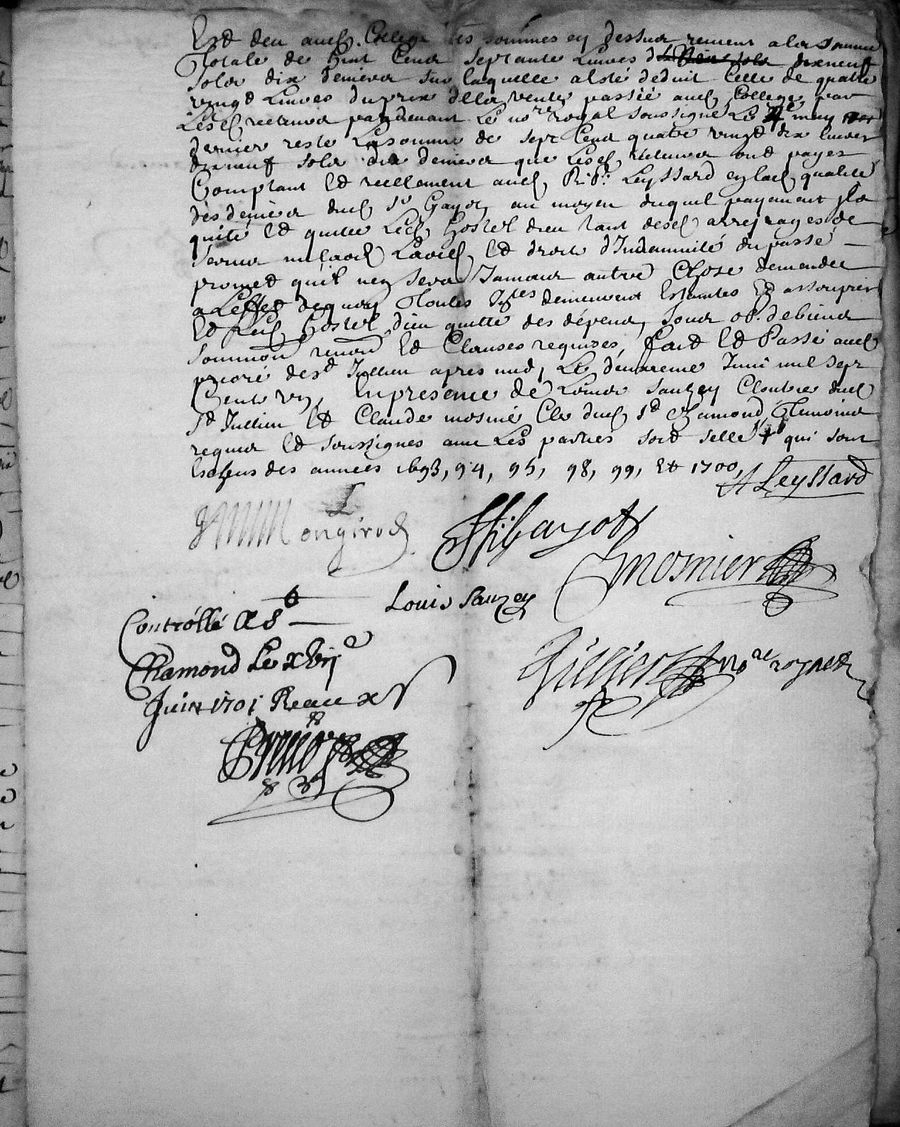 Est deu aud. College les sommes cy dessus revient a la somme
Totale de huit Cens septante Livres dixneuf
sols dix deniers sur laquelle a esté deduit Celle de quatre
vingt Livres du prix de la vente passée aud. College par
Lesd. recteurs pardevant Le nore royal soussigné Le 4e may
dernier reste La somme de sept Cens quatre vingt dix livres
dixneuf sols dix deniers que Lesd. recteurs ont payez
Comptant Et reellement aud. Leyssard en lad. qualité
des deniers dud. sr Gayot au moyen duquel payement Il a
quitté Et quitte Led. hostel dieu tant desd. arreyrages de
servis Et droit d'Indemnité du passé
promet qu'il n'en sera Jamais autre Chose demandée
a Leffet de quoy Toutes demeurent Estaintes Et assoupies
Et Led. hostel dieu quitte des dépens, sous ob. de biens
soumon renon Et Clauses requises, fait Et Passé aud.
prioré de st Jullien apres midy Le Juin mil sept
Cent un, En presence de Louis Sauzey Cloutre dud.
st Jullien Et Claude mosnié Clc dud. st Chamond Temoins
requis Et soussignés avec Les parties qui sont
des années 1693, 94, 95, 98, 99, Et 1700,
A Leyssard
Mongirod
gayot
mosnier
Louis Sauzey
Controllé a St
Chamond Le
Juin 1701 Receu
nore royal